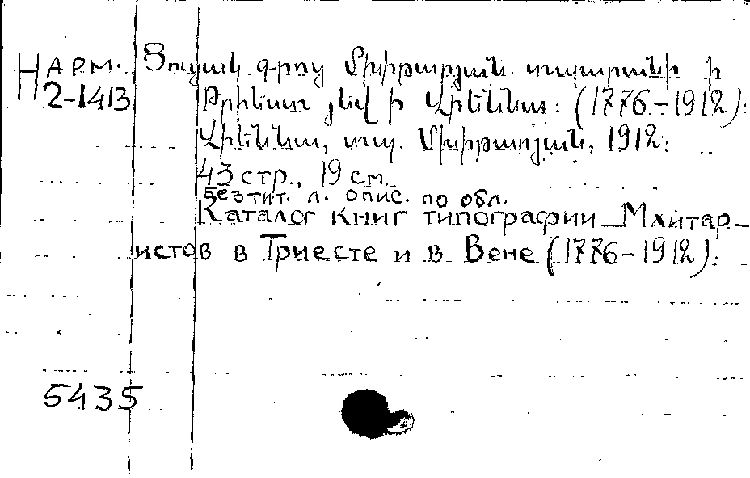 Нарм. Ցուցակ գրոց Մխիթարյան տպարանի ի
2-1413 Թրիեստ յեվ ի Վիեննա: (1776-1912):
Վիեննա, տպ. Մխիթարյան, 1912:
43 стр., 19 см.
без тит. л. опис. по обл.
Каталог книг типографии Мхитар-
истов в Триесте и в Вене (1776-1912).
5435